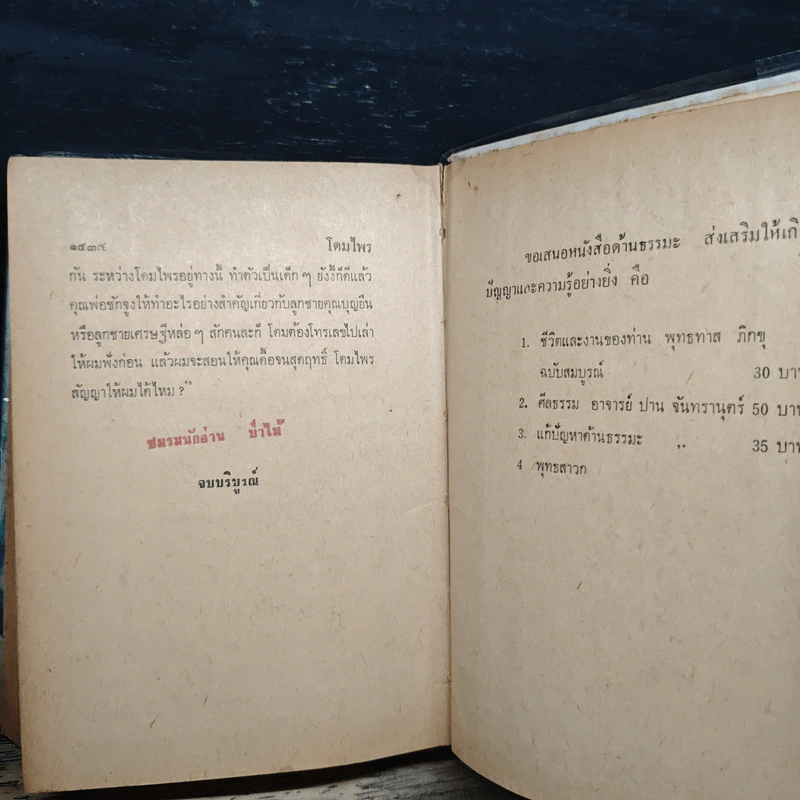 ๑๔๓๙ โดมไพร
กัน ระหว่างโดมไพรอยู่ทางนี้ ทำตัวเป็นเด็ก ๆ ยังงี้ก็ดีแล้ว
คุณพ่อชักจูงให้ทำอะไรอย่างสำคัญเกี่ยวกับลูกชายคุณบุญยืน
หรือลูกชายเศรษฐีหล่อ ๆ สักคนละก็ โดมต้องโทรเลขไปเล่า
ให้ผมฟังก่อน แล้วผมจะสอนให้คุณดื้อจนสุดฤทธิ์ โดมไพร
สัญญาให้ผมได้ไหม ?”
ชมรมนักอ่าน ป่าไม้
จบบริบูรณ์
ขอเสนอหนังสือด้านธรรมะ ส่งเสริมให้เกิ
ปัญญาและความรู้อย่างยิ่ง คือ
1. ชีวิตและงานของท่าน พุทธทาส ภิกขุ
ฉบับสมบูรณ์ 30 บาท
2. ศีลธรรม อาจารย์ ปาน จันทรานุตร์ 50 บาท
3. แก้ปัญหาด้านธรรมะ ,, 35 บาท
4 พุทธสาวก